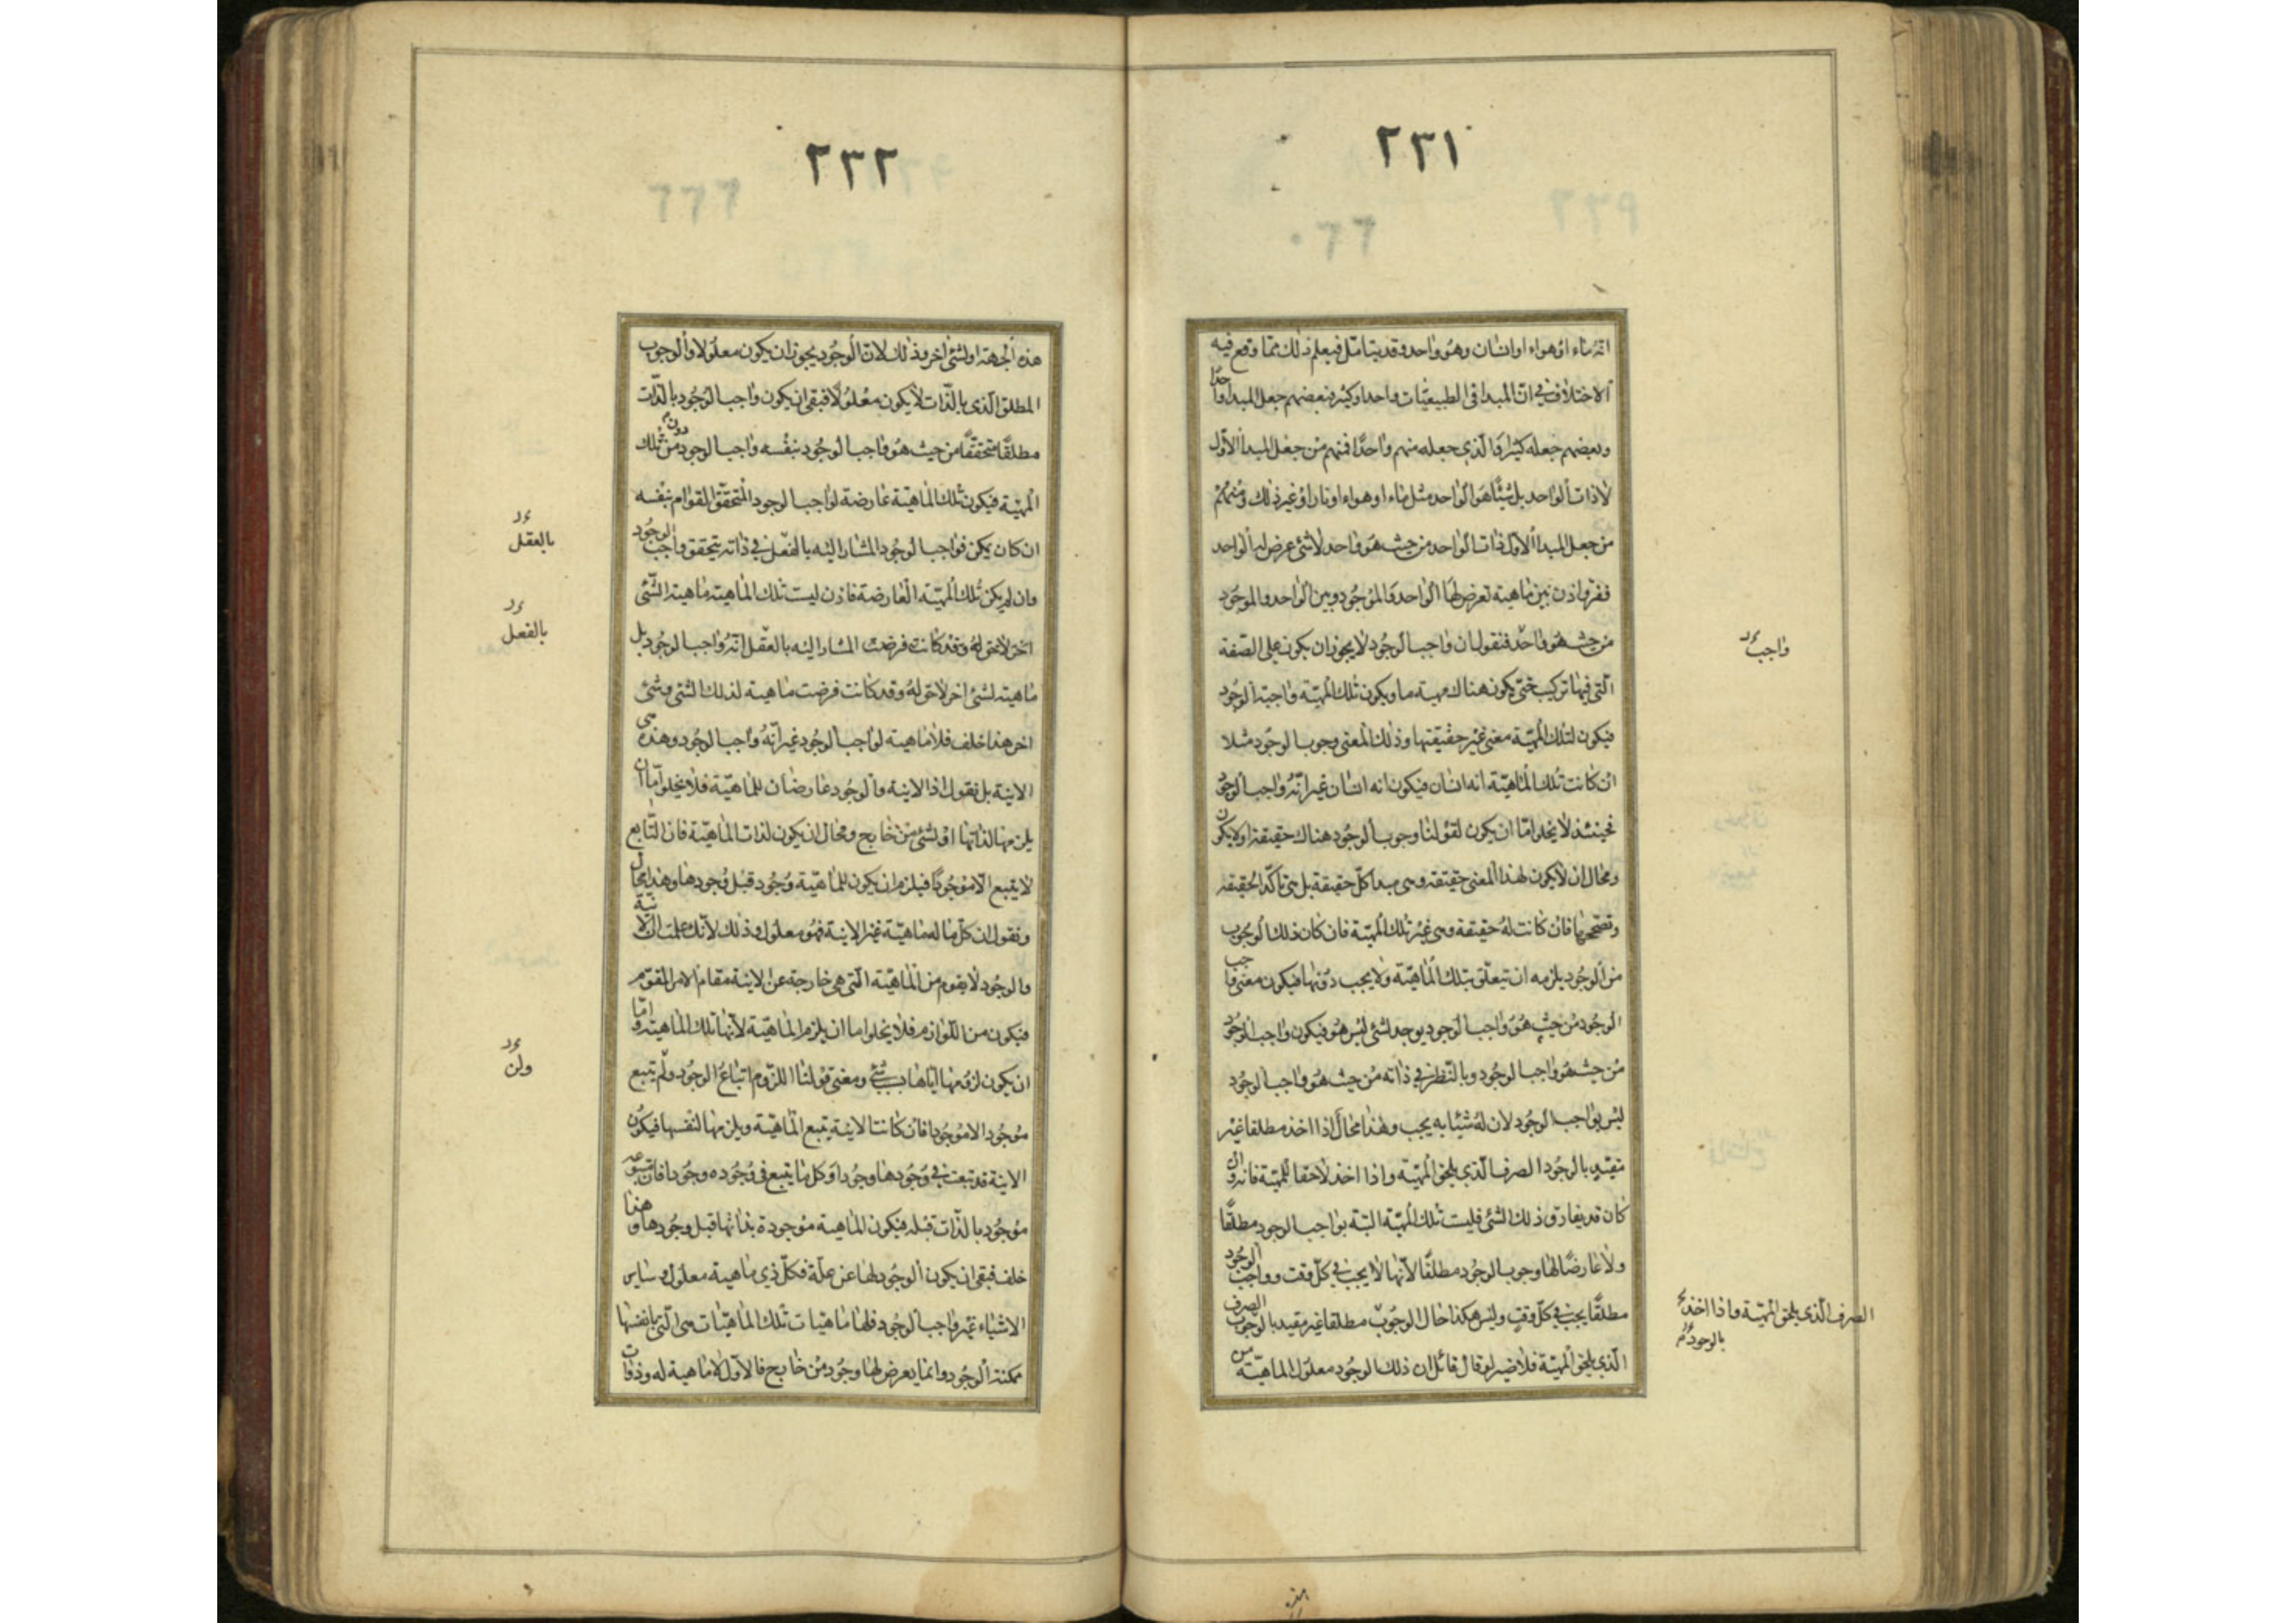 ٢٣١
انه ماء او هواء او انسان وهو واحد وقد يتامل فيعلم ذلك مما وقع فيه
الاختلاف في ان المبدا في الطبيعيات واحد او كثير فبعضهم جعل المبدا واحدا
وبعضهم جعله كثيرا والذي جعله منهم واحدا فمنهم من جعل المبدا الاول
لا ذات الواحد بل شيئا هو الواحد مثل ماء او هواء او نار او غير ذلك ومنهم
من جعل المبدا الاول ذات الواحد من حيث هو واحد لا شئ عرض له الواحد
ففرق اذن بين ماهية تعرض لها الواحد والموجود وبين الواحد والموجود
من حيث هو واحد فنقول ان واجب الوجود لا يجوز ان يكون على الصفة
التي فيها تركيب حتى يكون هناك مهية ما ويكون تلك المهية واجبة الوجود
فيكون لتلك المهية معنى غير حقيقتها وذلك المعنى وجوب الوجود مثلا
ان كانت تلك الماهية انه انسان فيكون انه انسان غير انه واجب الوجود
فحينئذ لا يخلو اما ان يكون لقولنا وجوب الوجود هناك حقيقة او لا يكون
ومحال ان لا يكون لهذا المعنى حقيقة وهى مبدا كل حقيقة بل هى تاكد الحقيقة
وتصححها فان كانت له حقيقة وهى غير تلك المهية فان كان ذلك الوجوب
من الوجود يلزمه ان تيعلق بتلك الماهية ولا يجب دونها فيكون معنى واجب
الوجود من حيث هو واجب الوجود يوجد لشئ ليس هو فيكون واجب الوجود
من حيث هو واجب الوجود وبالنظر في ذاته من حيث هو واجب الوجود
ليس بواجب الوجود لان له شيئا به يجب وهذا محال اذا اخذ مطلقا غير
مقيد بالوجود الصرف الذي يلحق المهية واذا اخذ لاحقا للمهية فانه وان
كان قد يفارق ذلك الشئ فليست تلك المهية البتة بواجب الوجود مطلقا
ولا عارضا لها وجوب الوجود مطلقا لانها لا يجب في كل وقت وواجب الوجود
مطلقا يجب في كل وقت وليس هكذا حال الوجوب مطلقا غير مقيد بالوجوب الصرف
الذي يلحق المهية فلا ضير لو قال قائل ان ذلك الوجود معلول للماهية من
واجب
الصرف الذي يلحق المهية واذا اخذ
بالوجود
٢٣٢
هذه الجهة او لشئ اخر وذلك لان الوجود يجوز ان يكون معلولا والوجوب
المطلق الذي بالذات لا يكون معلولا فبقى ان يكون واجب الوجود بالذات
مطلقا متحققا من حيث هو واجب الوجود بنفسه واجب الوجود من دون تلك
المهية فيكون تلك الماهية عارضة لواجب الوجود المتحقق القوام بنفسه
ان كان يمكن فواجب الوجود المشار اليه بالفعل في ذاته يتحقق واجب الوجود
وان لم يكن تلك المهية العارضة فاذن ليست تلك الماهية ماهية الشئ
اخر لاحق له وقد كانت فرضت المشار اليه بالعقل انه واجب الوجود بل
ماهية لشئ اخر لاحق له وقد كانت فرضت ماهية لذلك الشئ وشئ
اخر هذا خلف فلا ماهية لواجب الوجود غير انه واجب الوجود وهذه هى
الانية بل نقول اذا الانية والوجود عارضان للماهية فلا يخلو اما ان
يلزمها لذاتها او لشئ من خارج ومحال ان يكون لذات الماهية فان التابع
لا يتبع الا موجودا فيلزم ان يكون للماهية وجود قبل وجودها وهذا محال
ونقول ان كل ما له ماهية غير الانية فهو معلول وذلك لانك علمت ان الانية
والوجود لا يقوم من الماهية التي هي خارجة عن الانية مقام الامر المقوم
فيكون من اللوازم فلا يخلوا اما ان يلزم الماهية لانها تلك الماهية واما
ان يكون لزومها اياها بسبب شئ ومعنى قولنا اللزوم اتباع الوجود ولم يتبع
موجود الا موجودا فان كانت الانية يتبع الماهية ويلزمها لنفسها فيكون
الانية قد تبعت في وجودها وجودا وكل ما يتبع في وجوده وجودا فان متبوعه
موجود بالذات قبله فيكون الماهية موجودة بذاتها قبل وجودها وهذا
خلف فبقى ان يكون الوجود لها عن علة فكل ذي ماهية معلول وساير
الاشياء غير واجب الوجود فلها ماهيات تلك الماهيات هى التى بانفسها
ممكنة الوجود وانما يعرض لها وجود من خارج فالاول لا ماهية له وذوات
بالعقل
بالفعل
ولن